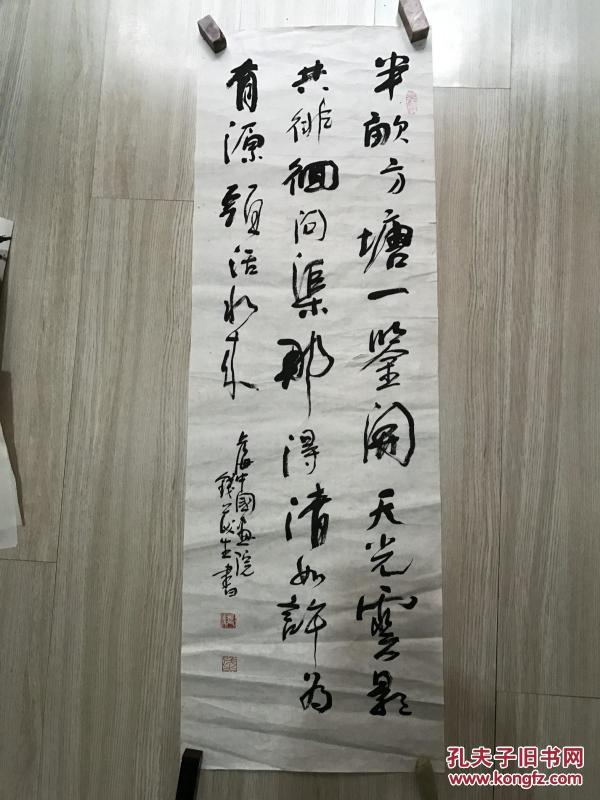 半畝方塘一鑒開天光雲影
共徘徊問渠那得清如許為
有源頭活水來
上海中國畫院
錢茂生書
孔夫子旧书网
www.kongfz.com